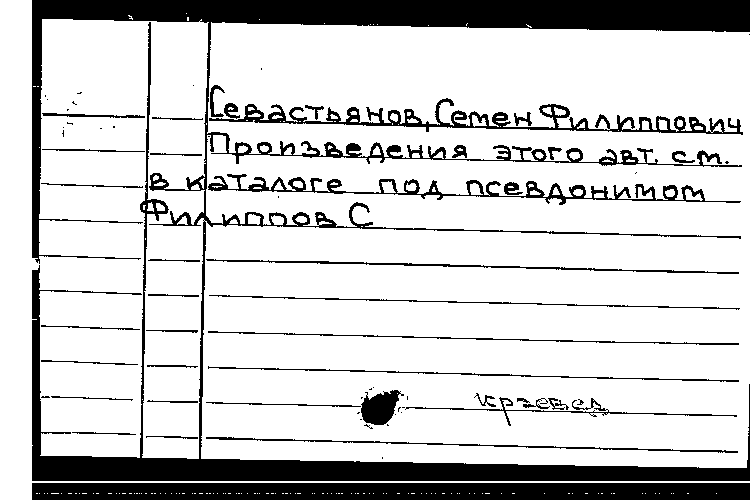 Севастьянов, Семен Филиппович
Произведения этого авт. см.
в каталоге под псевдонимом
Филиппов С
краевед